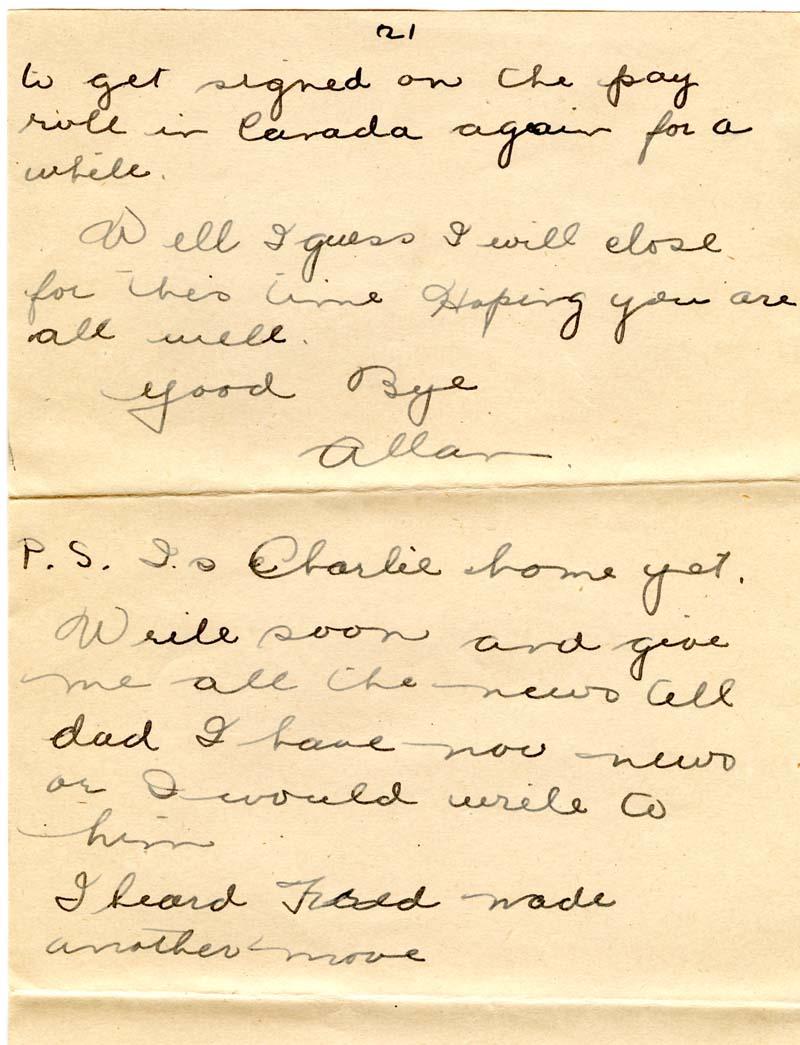 21
to get signed on the pay
roll in Canada again for a
while.
Well I guess I will close
for this time Hoping you are
all well.
Good Bye
Allan
P.S. Is Charlie home yet.
Write soon and give
me all the news tell
dad I have now news
or I would write to
him
I heard Fred made
another move